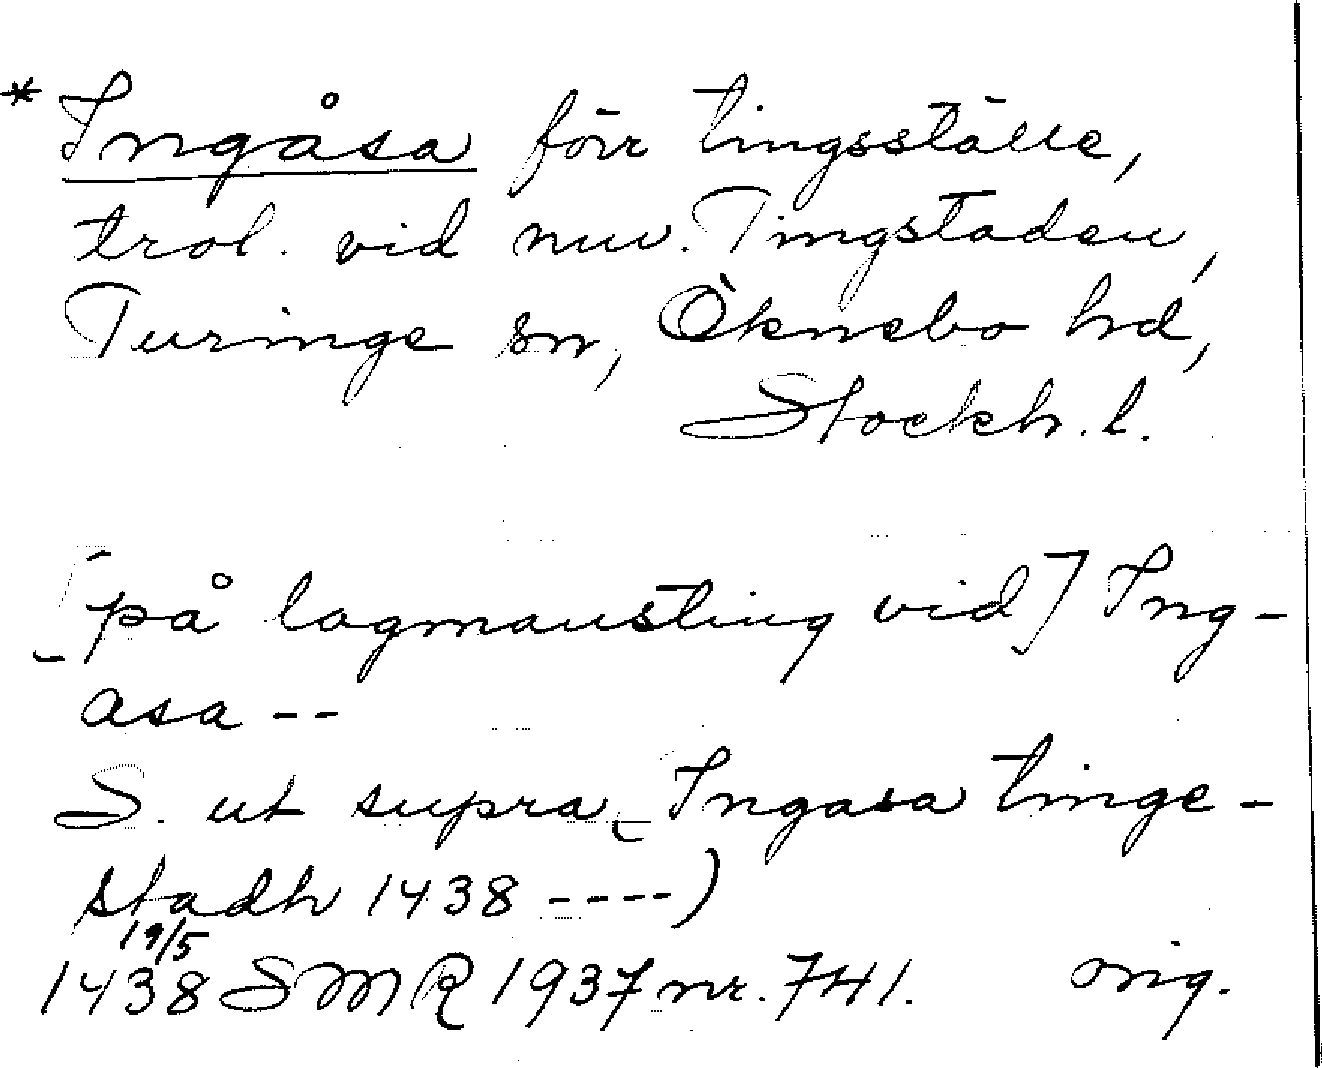 * Ingåsa förr tingsställe,
trol. vid nuv. Tingstaden,
Turinge sn, Öknebo hd,
Stockh. l.
[på lagmansting vid] Ing-
asa --
S. ut supra (Ingasa tinge-
stadh 1438 ----)
19/5
1438 SMR 1937 nr. 741. orig.